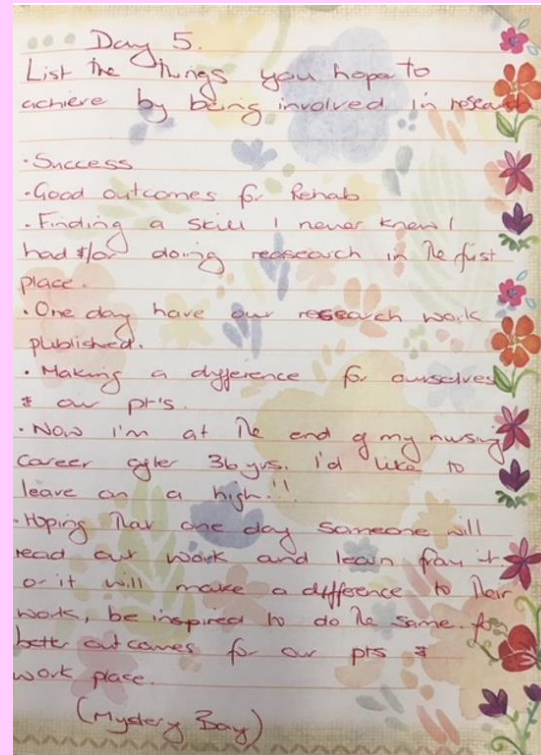 Day 5.
List the things you hope to
achieve by being involved in research
·Success
·Good outcomes for Rehab
·Finding a skill I never knew I
had &/or doing reasearch in the first
place.
·One day have our research work
plublished.
·Making a difference for ourselves
& our pt's.
·Now i'm at the end of my nursing
career after 36 yrs. i'd like to
leave on a high!!
·Hoping that one day someone will
read our work and learn from it.
or it will make a difference to their
work, be inspired to do the same. for
better outcomes for our pts &
work place.
(Mystery Bay)